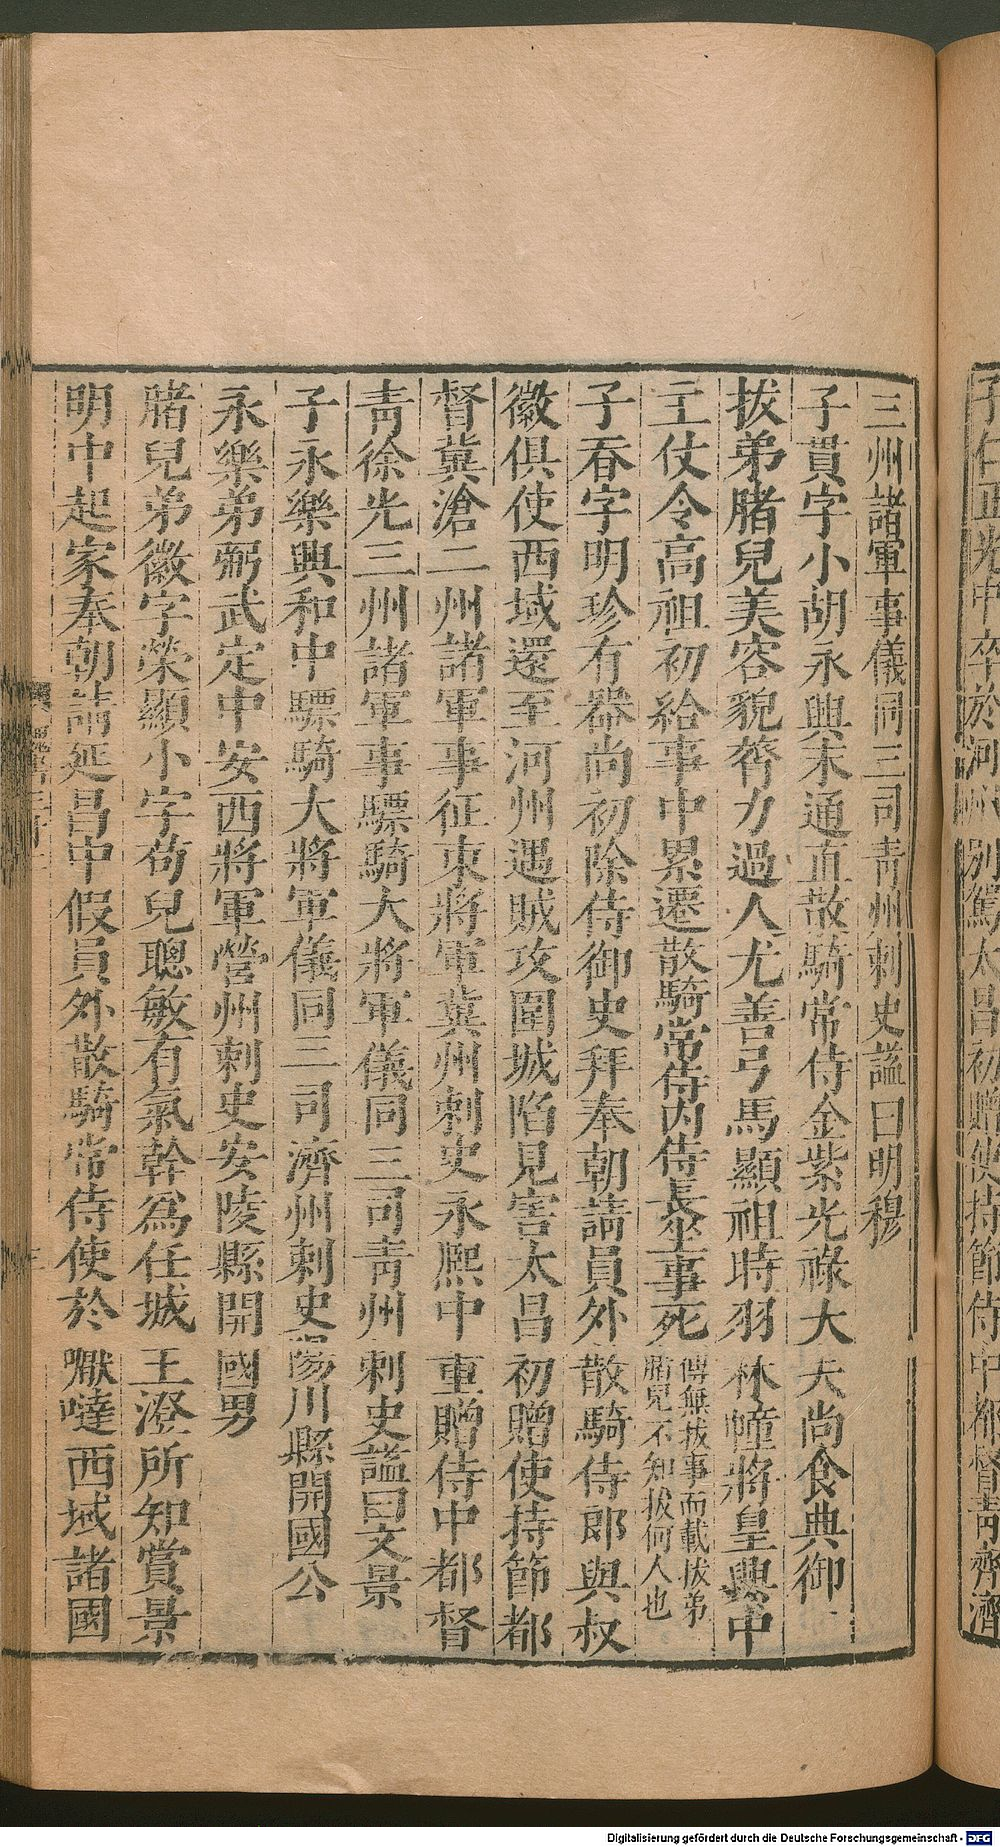 三州諸軍事儀同三司青州刺史謚曰明穆
子貫字小胡永興末通直散騎常侍金紫光祿大夫尚食典御
拔弟腤兒美容貌膂力過人尤善弓馬顯祖時羽林幢將皇興中
主仗令高祖初給事中累遷散騎常侍內侍長坐事死
傳無拔事而載拔弟
腤兒不知拔何人也
子吞字明珍有器尚初除侍御史拜奉朝請員外散騎侍郎與叔
徽俱使西域還至河州遇賊攻圍城陷見害太昌初贈使持節都
督冀滄二州諸軍事征東將軍冀州刺史永熙中重贈侍中都督
青徐光三州諸軍事驃騎大將軍儀同三司青州刺史謚曰文景
子永樂興和中驃騎大將軍儀同三司濟州刺史陽川縣開國公
永樂弟弼武定中安西將軍營州刺史安陵縣開國男
腤兒弟徽字榮顯小字苟兒聰敏有氣幹為任城王澄所知賞景
明中起家奉朝請延昌中假員外散騎常侍使於嚈噠西域諸國
子仁正光中卒於河州別駕太昌初贈使持節侍中都督青齊濟
Digitalisierung gefördert durch die Deutsche Forschungsgemeinschaft - DFG